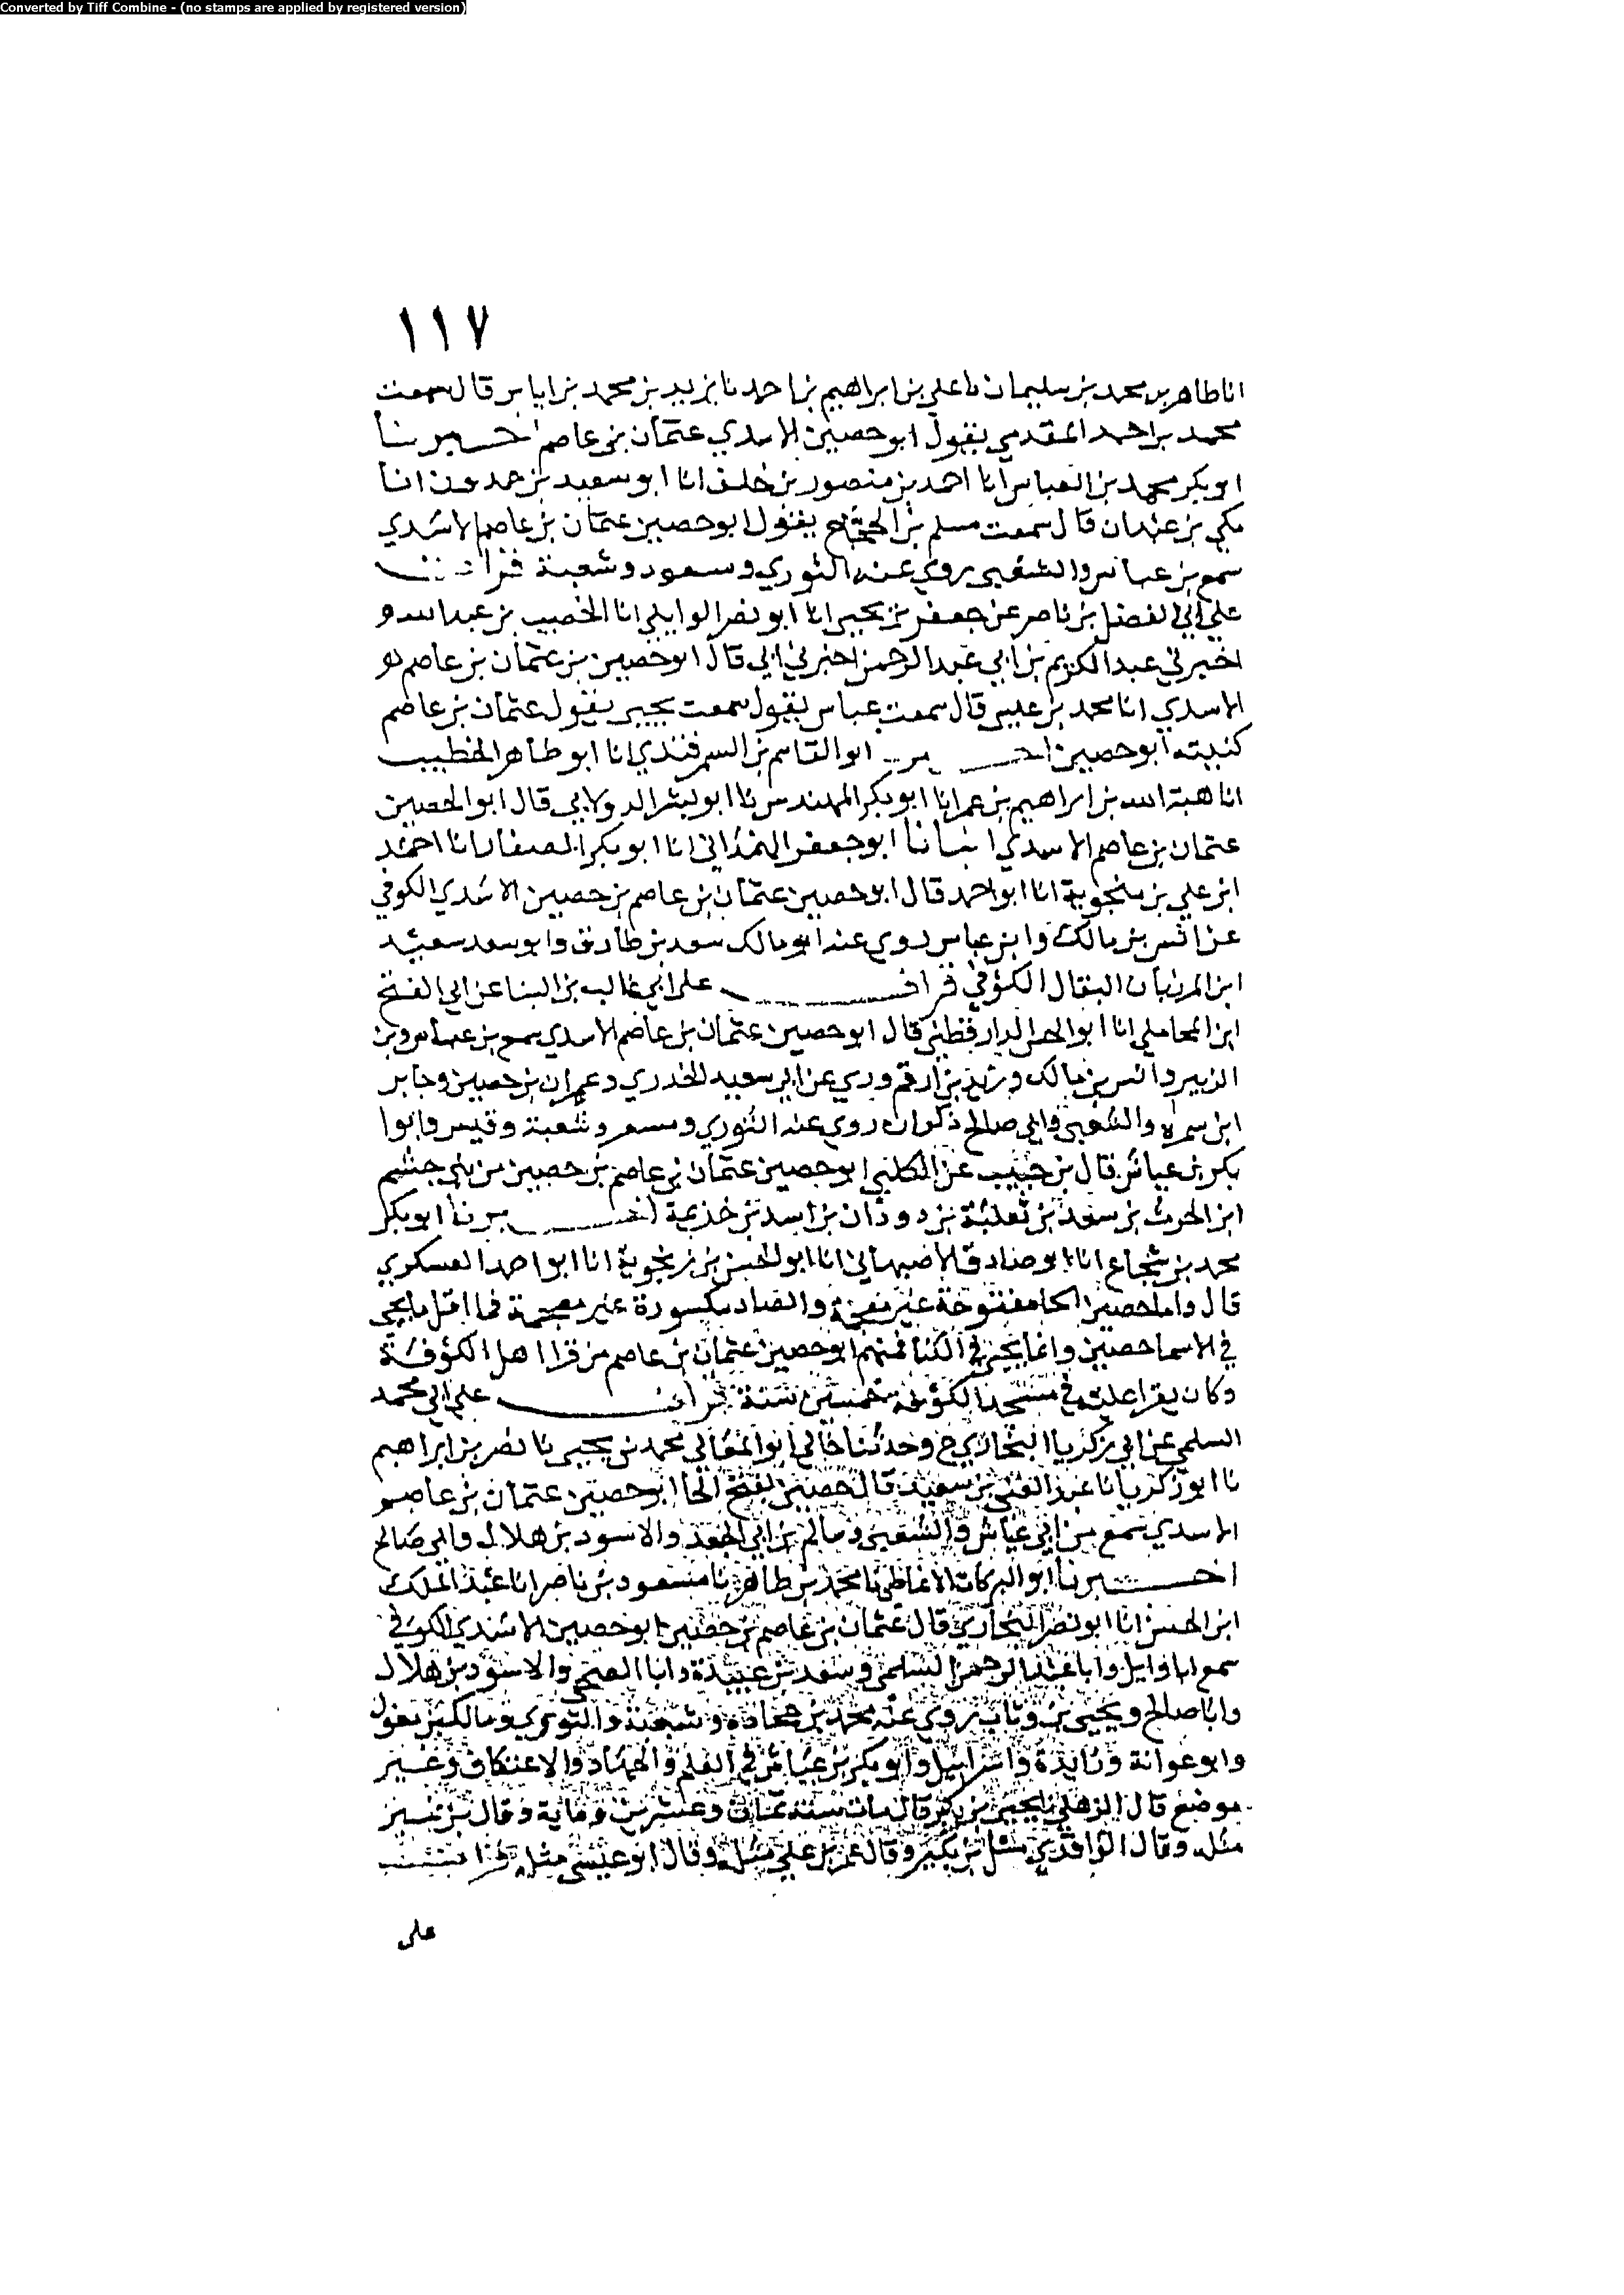 Converted by Tiff Combine - (no stamps are applied by registered version)
١١٧
انا طاهر بن محمد بن سليمان نا علي بن ابراهيم بن احمد نا يزيد بن محمد بن اياس قال سمعت
محمد بن احمد المقدمي يقول ابو حصين الاسدي عثمان بن عاصم اخبرنا
ابو بكر محمد بن العباس انا احمد بن منصور بن خلف انا ابو سعيد بن حمدون انا
مكي بن عبدان قال سمعت مسلم بن الحجاج يقول ابو حصين عثمان بن عاصم الاسدي
سمع بن عباس والشعبي روي عنه الثوري وسعود وشعبة قرات
علي ابي الفضل بن ناصر عن جعفر بن يحيى انا ابو نصر الوايلي انا الخصيب بن عبد الله و
اخبرني عبد الكريم بن ابي عبد الرحمن اخبرني ابي قال ابو حصين بن عثمان بن عاصم هو
الاسدي انا محمد بن عيسى قال سمعت عباس يقول سمعت يحيى يقول عثمان بن عاصم
كنيته ابو حصين اخبرنا ابو القاسم بن السمرقندي انا ابو طاهر الخطيب
انا هبة الله بن ابراهيم بن عمر انا ابو بكر المهندس نا ابو بشر الدولابي قال ابو الحصين
عثمان بن عاصم الاسدي انبانا ابو جعفر الهمذاني انا ابو بكر الصفار انا احمد
ابن علي بن منجوية انا ابو احمد قال ابو حصين عثمان بن عاصم بن حصين الاسدي الكوفي
عن انس بن مالك وابن عباس روي عنه ابو مالك سعد بن طارق وابو سعد سعيد
ابن المرزبان البقال الكوفي قرات علي ابي غالب بن البنا عن ابي الفتح
ابن المحاملي انا ابو الحسن الدارقطني قال ابو حصين عثمان بن عاصم الاسدي سمع بن عباس وبن
الزبير وانس بن مالك وزيد بن ارقم وروي عن ابي سعيد الخدري وعمران بن حصين وجابر
ابن سمرة والشعبي وابي صالح ذكوان روي عنه الثوري ومسعر وشعبة وقيس وابوا
بكر بن عياش قال بن حبيب عن الكلبي ابو حصين عثمان بن عاصم بن حصين من بني جشم
ابن الحرث بن سعد بن ثعلبة بن دودان بن اسد بن خزيمة اخبرنا ابو بكر
محمد بن شجاع انا ابو صادق الاصبهاني انا ابو الحسن بن زنجوية انا ابو احمد العسكري
قال واما حصين الحا مفتوحة غير معجمة والصاد مكسورة غير معجمة فما اقل ما يجي
في الاسما حصين وانما يجي في الكنا فمنهم ابو حصين عثمان بن عاصم من قرا اهل الكوفة
وكان يقرا عليه في مسجد الكوفة خمسين سنة قرات علي ابي محمد
السلمي عن ابي زكريا البخاري ح وحدثنا خالي ابو المعالي محمد بن يحيى نا نصر بن ابراهيم
نا ابو زكريا نا عبد الغني بن سعيد قال حصين بفتح الحا ابو حصين عثمان بن عاصم
الاسدي سمع من ابي عياش والشعبي وسالم بن ابي الجعد والاسود بن هلال وابي صالح
اخبرنا ابو البركات الانماطي نا محمد بن طاهر نا مسعود بن ناصر انا عبد الملك
ابن الحسن انا ابو نصر البخاري قال عثمان بن عاصم بن حصين ابو حصين الاسدي الكوفي
سمع ابا وايل وابا عبد الرحمن السلمي وسعد بن عبيدة وابا الضحى والاسود بن هلال
وابا صالح ويحيى بن وثاب روي عنه محمد بن جحادة وشعبة والثوري ومالك بن مغول
وابو عوانة وزايدة واسراييل وابو بكر بن عياش في العلم والجهاد والاعتكاف وغير
موضع قال الذهلي نا يحيى بن بكير قال مات سنة ثمان وعشرين وماية وقال بن نمير
مثله وقال الواقدي مثل بن بكير وقال عمر بن علي مثله وقال ابو عيسى مثله قرات
على